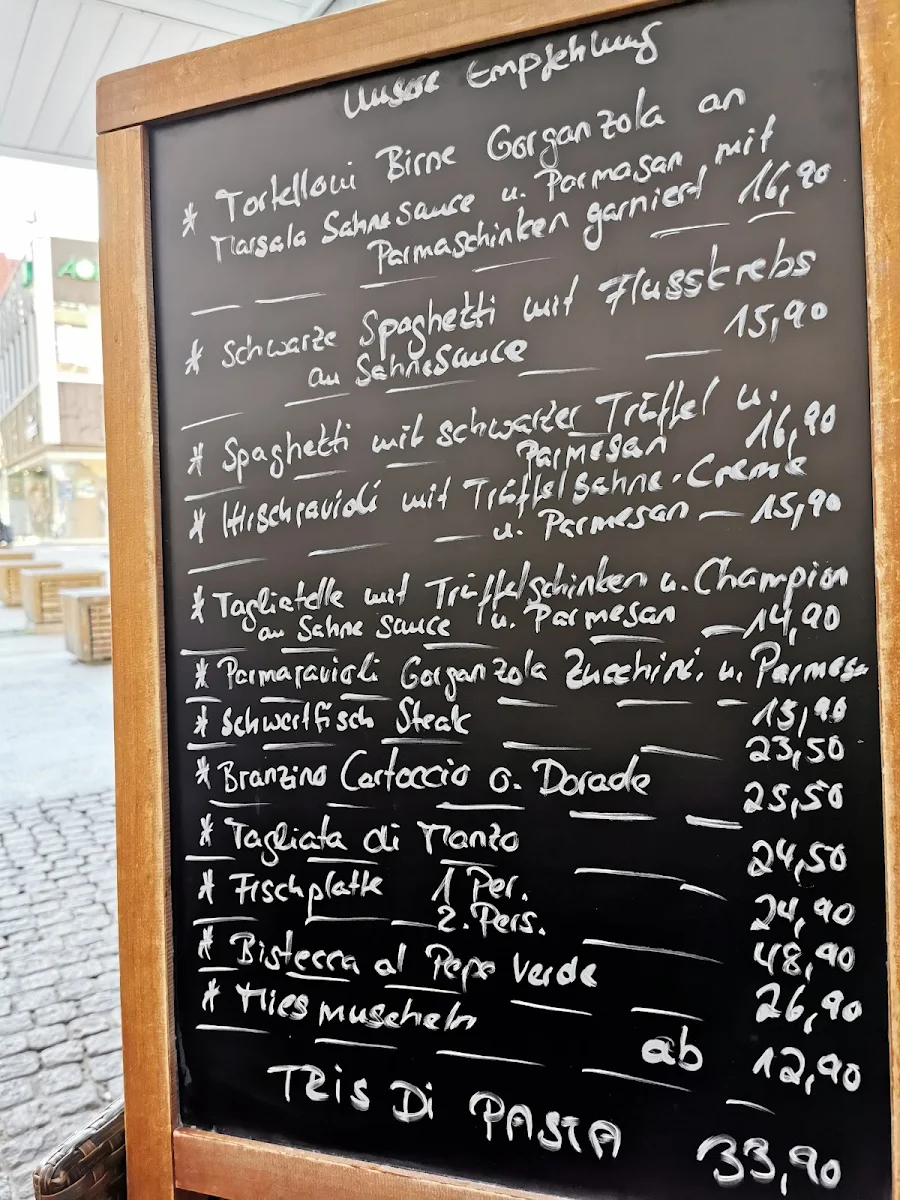 Unsere Empfehlung
* Tortelloni Birne Gorganzola an
Marsala Sahnesauce u. Parmasan mit
Parmaschinken garniert 16,90
* Schwarze Spaghetti mit Flusskrebs
an Sahnesauce 15,90
* Spaghetti mit schwarzer Trüffel u.
Parmesan 16,90
* Hirschravioli mit Trüffelsahne-Creme
u. Parmesan 15,90
* Tagliatelle mit Trüffelschinken u. Champion
an Sahne Sauce u. Parmesan 14,90
* Parmaravioli Gorganzola Zucchini. u. Parmesa
15,90
* Schwertfisch Steak 23,50
* Branzino Cartoccio o. Dorade 25,50
* Tagliata di Manzo 24,50
* Fischplatte 1 Per. 24,90
2. Pers. 48,90
* Bistecca al Pepe Verde 26,90
* Miesmuscheln ab 12,90
TRis Di PASTA 33,90